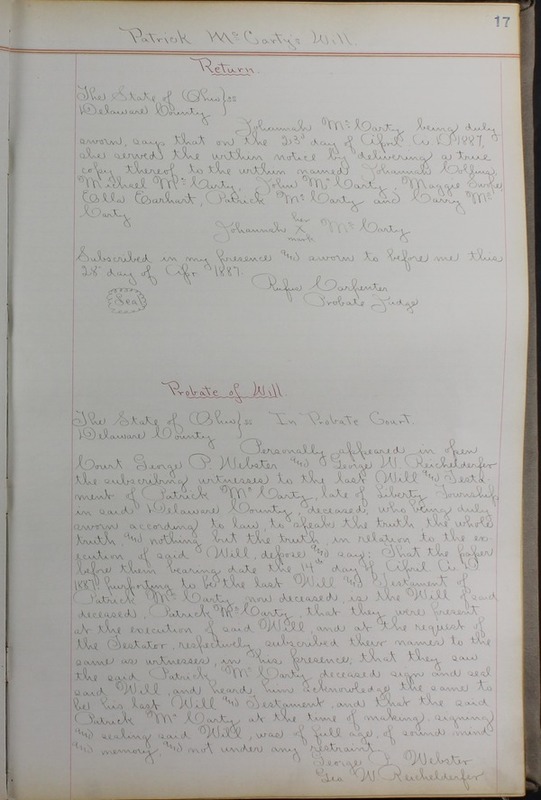 17
Patrick McCarty's Will.
Return.
The State of Ohio } ss
Delaware County }
Johannah McCarty being duly
sworn, says that on the 23d day of April A.D. 1887,
she served the within notice by delivering a true
copy thereof to the within named Johannah Collins,
Michael McCarty, John McCarty, Maggie
Ella Earhart, Patrick McCarty and Carry Mc
Carty
her
Johannah X McCarty
mark
Subscribed in my presence and sworn to before me this
28 day of Apr 1887.
Rufus Carpenter
Probate Judge
Seal
Probate of Will
The State of Ohio } ss In Probate Court.
Delaware County }
Personally appeared in open
Court George P. Webster and George W. Reichelderfer
the subscribing witnesses to the last Will and Testa-
ment of Patrick McCarty, late of Liberty Township,
in said Delaware County, deceased, who being duly
sworn according to law, to speak the truth the whole
truth and nothing but the truth, in relation to the ex-
ecution of said Will, depose and say: That the paper
before them bearing date the 14th day of April A.D.
1887 purporting to be the last Will and Testament of
Patrick McCarty now deceased, is the Will of said
deceased, Patrick McCarty, that they were present
at the execution of said Will, and at the request of
the Testator, respectively subscribed their names to the
same as witnesses, in his presence, that they saw
the said Patrick McCarty deceased sign and seal
said Will, and heard him acknowledge the same to
be his last Will and Testament, and that the said
Patrick McCarty at the time of making, signing
and sealing said Will, was of full age, of sound mind
and memory, and not under any restraint.
George P. Webster
Geo W. Reichelderfer